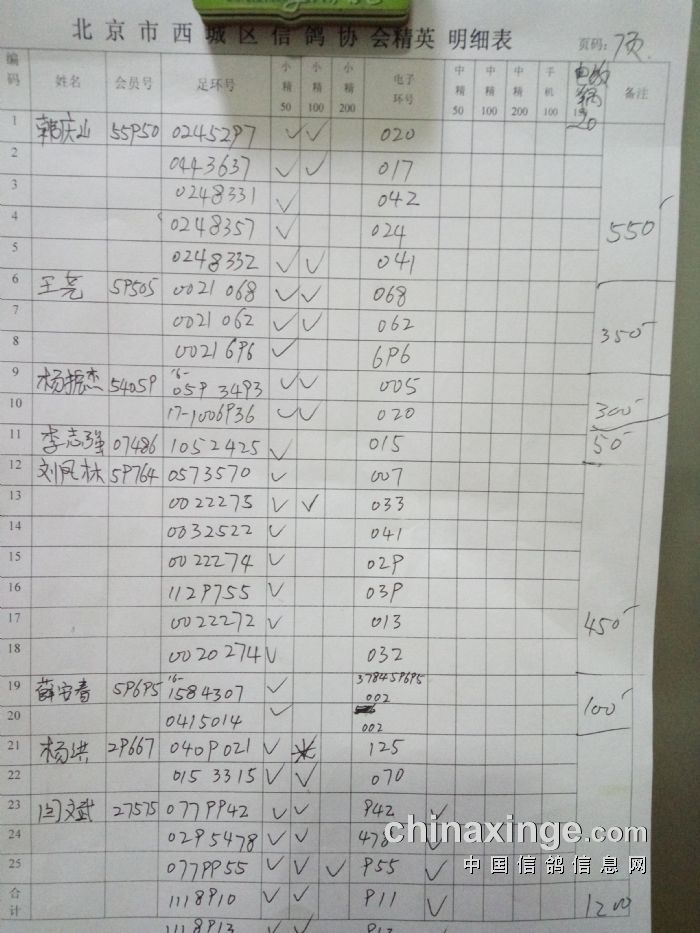 北京市西城区信鸽协会精英明细表 页码: 7页.
编码 姓名 会员号 足环号 小精50 小精100 小精200 电子环号 中精50 中精100 中精200 手机100 备注
1 韩庆山 55950 0245297 ✓ ✓ 020
2 0443637 ✓ ✓ 017
3 0248331 ✓ 042
4 0248357 ✓ 024 550
5 0248332 ✓ ✓ 041
6 王亮 59505 0021068 ✓ ✓ 068
7 0021062 ✓ ✓ 062 350
8 0021696 ✓ 696
9 杨振杰 54059 16- 059 3493 ✓ ✓ 005
10 17-1006936 ✓ ✓ 020 300
11 李志强 07486 1052425 ✓ 015 50
12 刘凤林 59764 0573570 ✓ 007
13 0022275 ✓ ✓ 033
14 0032522 ✓ 041
15 0022274 ✓ 029
16 1129755 ✓ 039
17 0022272 ✓ 013 450
18 0020274 ✓ 032
19 薛安春 59695 16- 1584307 ✓ 378459695 002 100
20 0415014 ✓ 002
21 杨洪 29667 0409021 ✓ 125
22 015 3315 ✓ ✓ 070
23 闫文斌 27575 0779942 ✓ ✓ 942 ✓
24 0295478 ✓ ✓ 478
25 0779955 ✓ ✓ ✓ 955 ✓
合计 1118910 ✓ ✓ 911 ✓ 1200
1118913 ✓ ✓ 913
chinaxinge.com
中国信鸽信息网